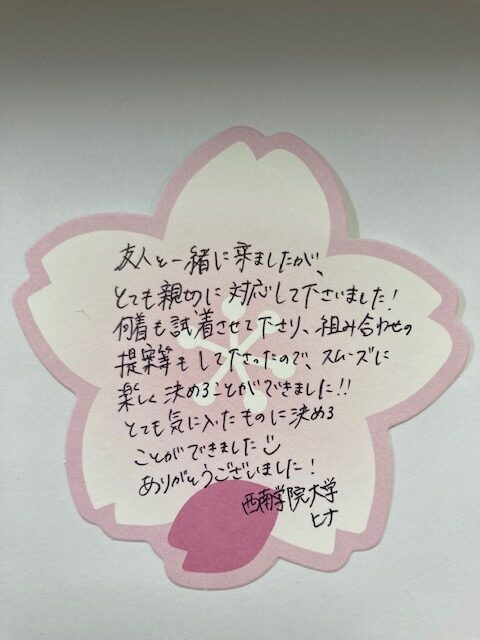 友人と一緒に来ましたが、
とても親切に対応して下さいました!
何着も試着させて下さり、組み合わせの
提案等もして下さったので、スムーズに
楽しく決めることができました!!
とても気に入ったものに決める
ことができました
ありがとうございました!
西南学院大学
ヒナ